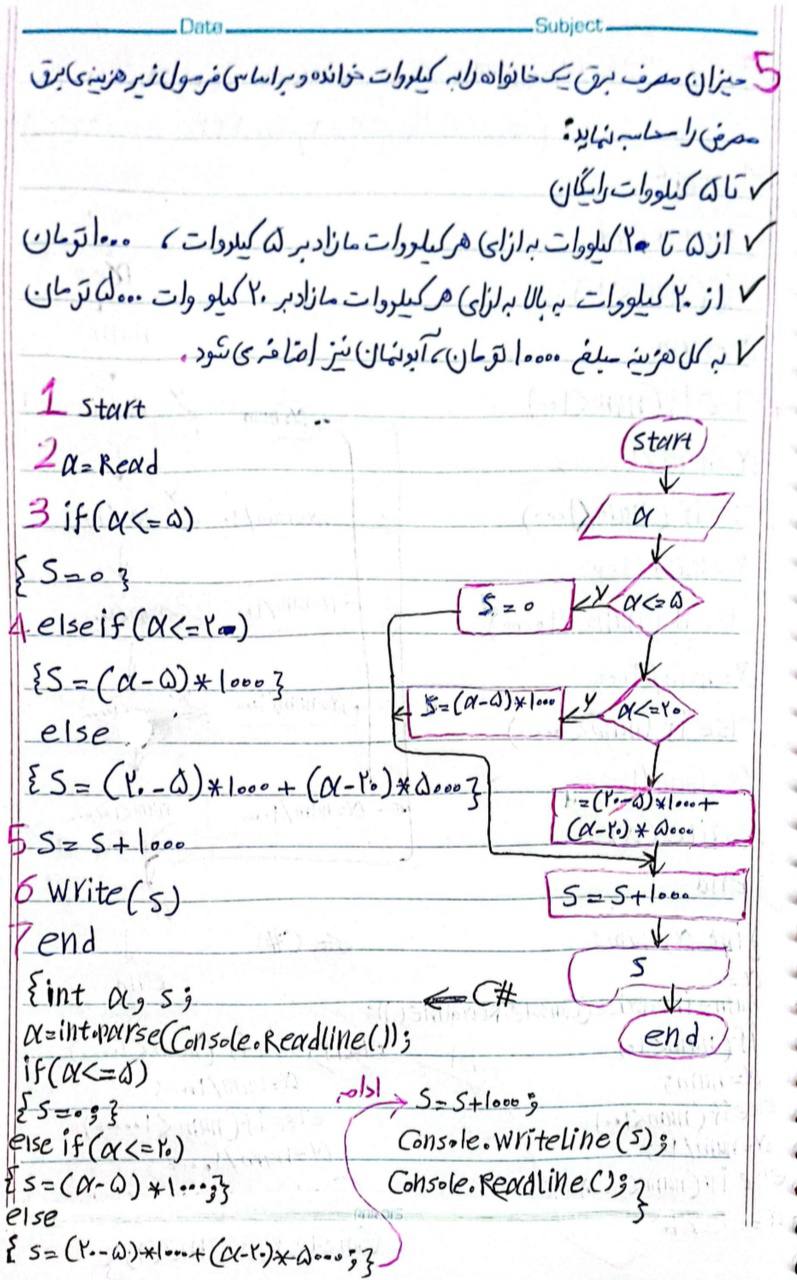 Date
Subject
5 میزان مصرف برق یک خانواده را به کیلووات خوانده و بر اساس فرمول زیر هزینه ی برق
مصرفی را محاسبه نماید:
✓ تا ۵ کیلووات رایگان
✓ از ۵ تا ۲۰ کیلووات به ازای هر کیلووات مازاد بر ۵ کیلووات، ۱۰۰۰ تومان
✓ از ۲۰ کیلووات به بالا به ازای هر کیلووات مازاد بر ۲۰ کیلو وات ۵۰۰۰ تومان
✓ به کل هزینه مبلغ ۱۰۰۰۰ تومان، آبونمان نیز اضافه ی شود.
1 start
2 a=Read
3 if(a<=۵)
{ S=۰ }
4 elseif(a<=۲۰)
{S=(a-۵)*۱۰۰۰}
else
{S=(۲۰-۵)*۱۰۰۰+(a-۲۰)*۵۰۰۰}
5 S=S+۱۰۰۰
6 write(s)
7 end
start
a
a<=۵
y
S=۰
a<=۲۰
y
S=(a-۵)*۱۰۰۰
=(۲۰-۵)*۱۰۰۰+
(a-۲۰)*۵۰۰۰
S=S+۱۰۰۰
S
end
← C#
{int a, s;
a=int.parse(Console.Readline());
if(a<=۵)
{s=۰;}
else if(a<=۲۰)
{s=(a-۵)*۱۰۰۰;}
else
{ s=(۲۰-۵)*۱۰۰۰+(a-۲۰)*۵۰۰۰;}
ادامه
S=S+۱۰۰۰;
Console.writeline(s);
Console.Readline();}